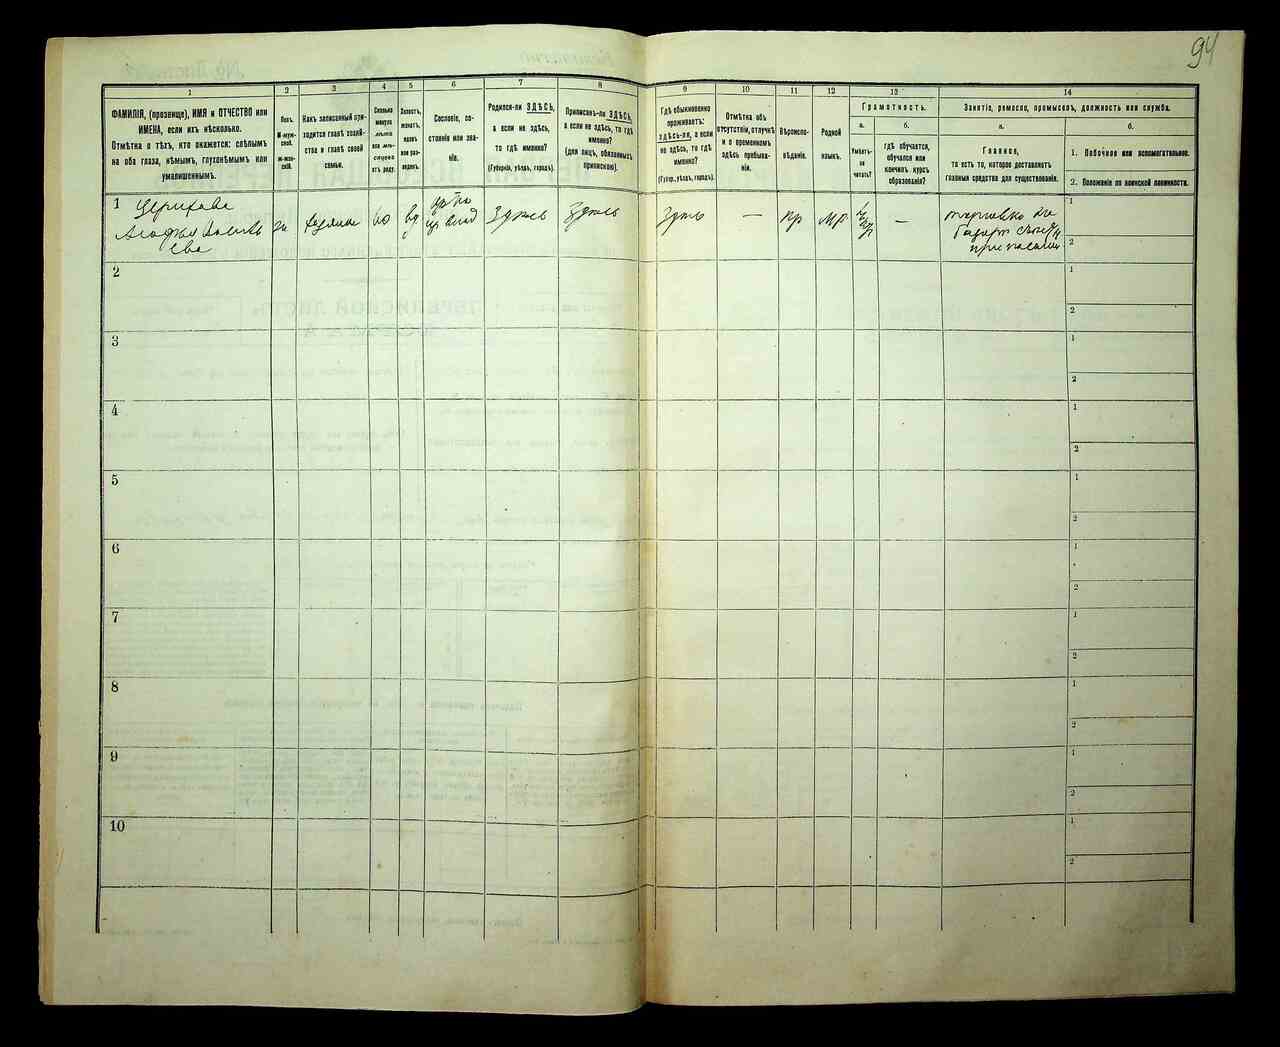 94
1
ФАМИЛІЯ, (прозвище), ИМЯ и ОТЧЕСТВО или
ИМЕНА, если ихъ нѣсколько.
Отмѣтка о тѣхъ, кто окажется: слѣпымъ
на оба глаза, нѣмымъ, глухонѣмымъ или
умалишеннымъ.
2
Полъ.
М-муж-
ской.
Ж-жен-
скій.
3
Какъ записанный при-
ходится главѣ хозяй-
ства и главѣ своей
семьи.
4
Сколько
минуло
лѣтъ
или мѣ-
сяцевъ
отъ роду.
5
Холостъ,
женатъ,
вдовъ
или раз-
веденъ.
6
Сословіе, со-
стояніе или зва-
ніе.
7
Родился-ли ЗДѢСЬ,
а если не здѣсь,
то гдѣ именно?
(Губернія, уѣздъ, городъ).
8
Приписанъ-ли ЗДѢСЬ,
а если не здѣсь, то гдѣ
именно?
(для лицъ, обязанныхъ
припискою).
9
Гдѣ обыкновенно
проживаетъ:
здѣсь-ли, а если
не здѣсь, то гдѣ
именно?
(Губер., уѣздъ, городъ).
10
Отмѣтка объ
отсутствіи, отлучкѣ
и о временномъ
здѣсь пребыва-
ніи.
11
Вѣроиспо-
вѣданіе.
12
Родной
языкъ.
13
Грамотность.
а.
Умѣетъ-
ли
читать?
б.
гдѣ обучается,
обучался или
кончилъ курсъ
образованія?
14
Занятіе, ремесло, промыселъ, должность или служба.
а.
Главное,
то есть то, которое доставляетъ
главныя средства для существованія.
б.
1. Побочное или вспомогательное.
2. Положеніе по воинской повинности.
1
Агафья
ж
хозяйка
60
вд
Здѣсь
Здѣсь
Здѣсь
—
пр
—
торговка на
базарѣ
припасами
1
2
2
1
2
3
1
2
4
1
2
5
1
2
6
1
2
7
1
2
8
1
2
9
1
2
10
1
2